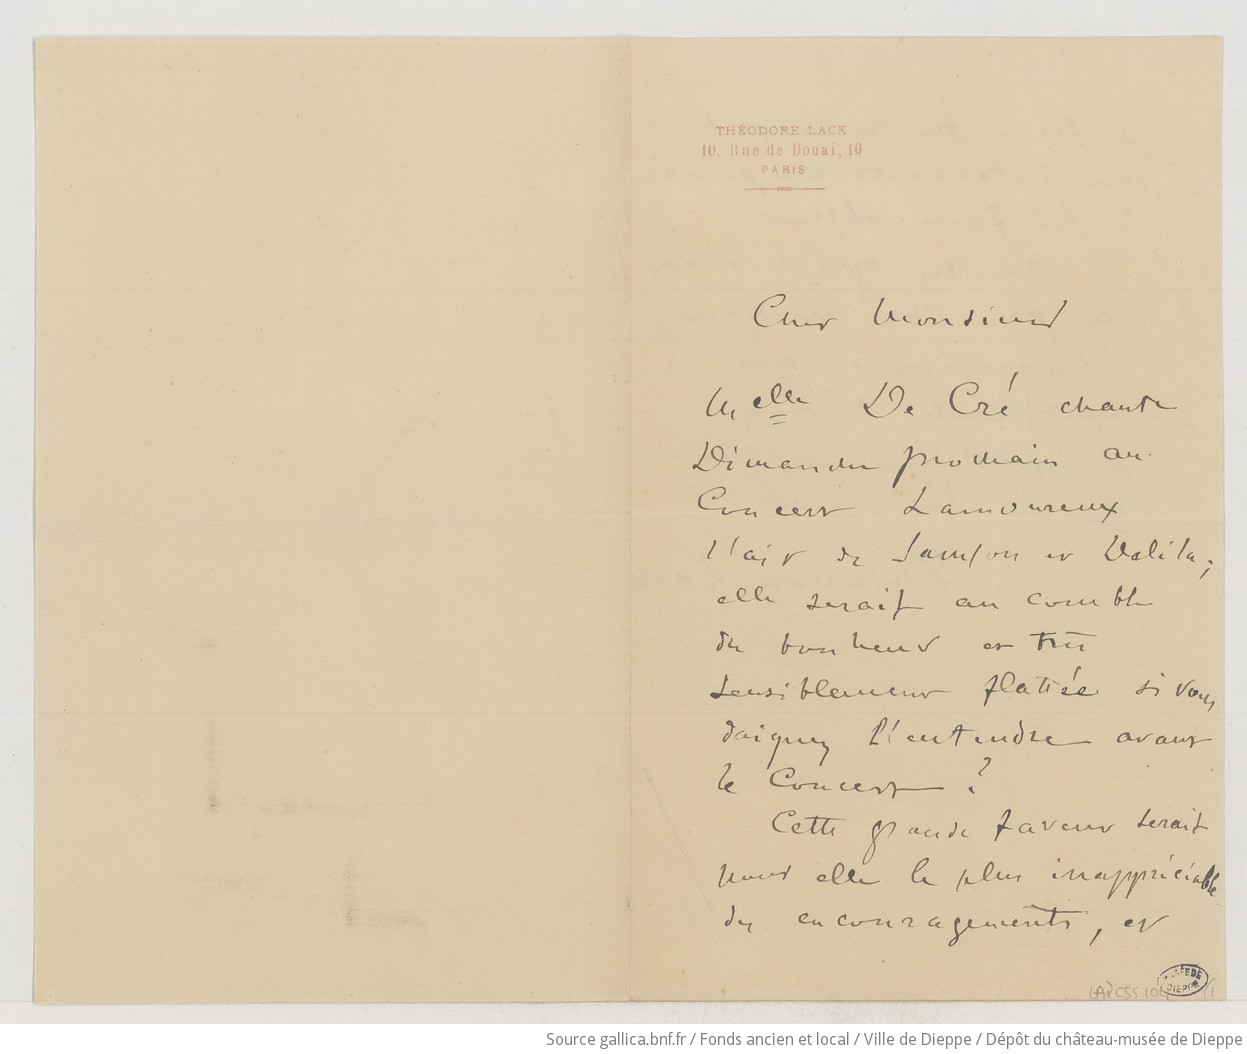 THÉODORE LACK
10, Rue de Douai, 10
PARIS
Cher Monsieur
Melle De Cré chante
Dimanche prochain au
Concert Lamoureux
l'air de Samson et Dalila;
elle serait au comble
du bonheur et très
sensiblement flattée si vous
daignez l'entendre avant
le Concert?
Cette grande faveur serait
pour elle le plus inappréciable
des encouragements, et
MUSÉE DE
DIEPPE
Source gallica.bnf.fr / Fonds ancien et local / Ville de Dieppe / Dépôt du château-musée de Dieppe